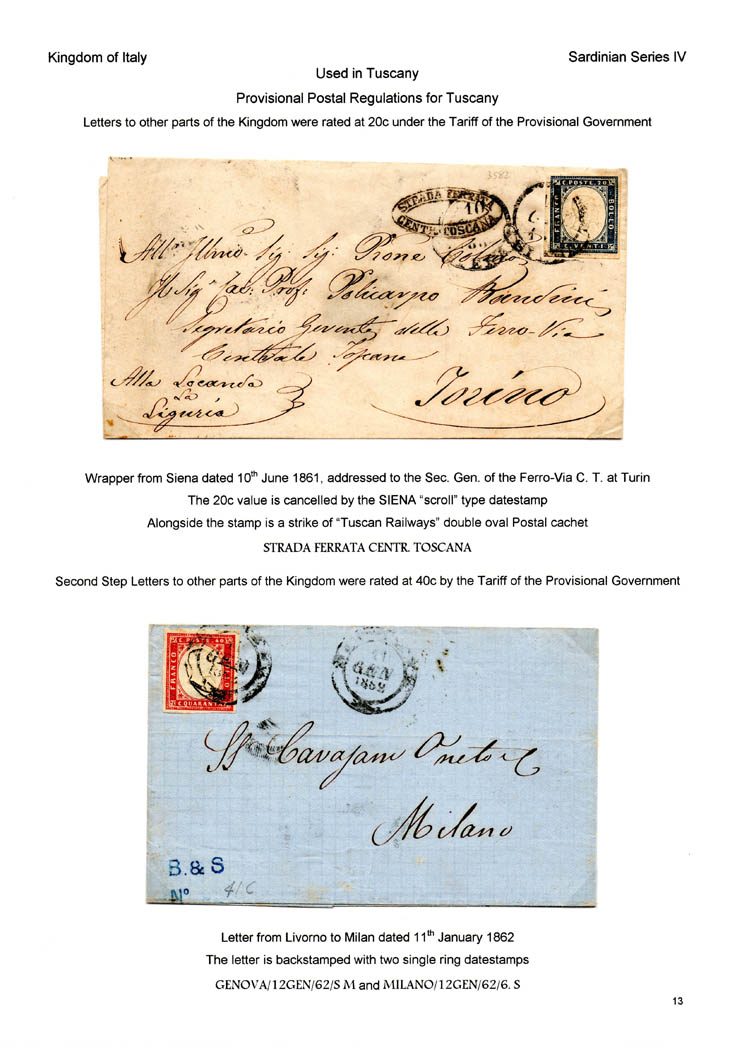 Kingdom of Italy
Sardinian Series IV
Used in Tuscany
Provisional Postal Regulations for Tuscany
Letters to other parts of the Kingdom were rated at 20c under the Tariff of the Provisional Government
3582
STRADA FERRATA
10
CENTR. TOSCANA
C. POSTE. 20
FRANCO
BOLLO
C. VENTI
All' Illmo. Sig. Sig. Prone
Il Sigr Cav: Prof: Policarpo Bandini
Segretario Gerente della Ferro-Via
Centrale Toscana
Alla Locanda
La
Liguria
Torino
Wrapper from Siena dated 10th June 1861, addressed to the Sec. Gen. of the Ferro-Via C. T. at Turin
The 20c value is cancelled by the SIENA “scroll” type datestamp
Alongside the stamp is a strike of “Tuscan Railways” double oval Postal cachet
STRADA FERRATA CENTR. TOSCANA
Second Step Letters to other parts of the Kingdom were rated at 40c by the Tariff of the Provisional Government
C. POSTE. 40
FRANCO
BOLLO
C. QUARANTA
GEN
11
GEN
1862
SS Cavajani Oneto e C
Milano
B. & S
No
41 C
Letter from Livorno to Milan dated 11th January 1862
The letter is backstamped with two single ring datestamps
GENOVA/12GEN/62/S M and MILANO/12GEN/62/6. S
13